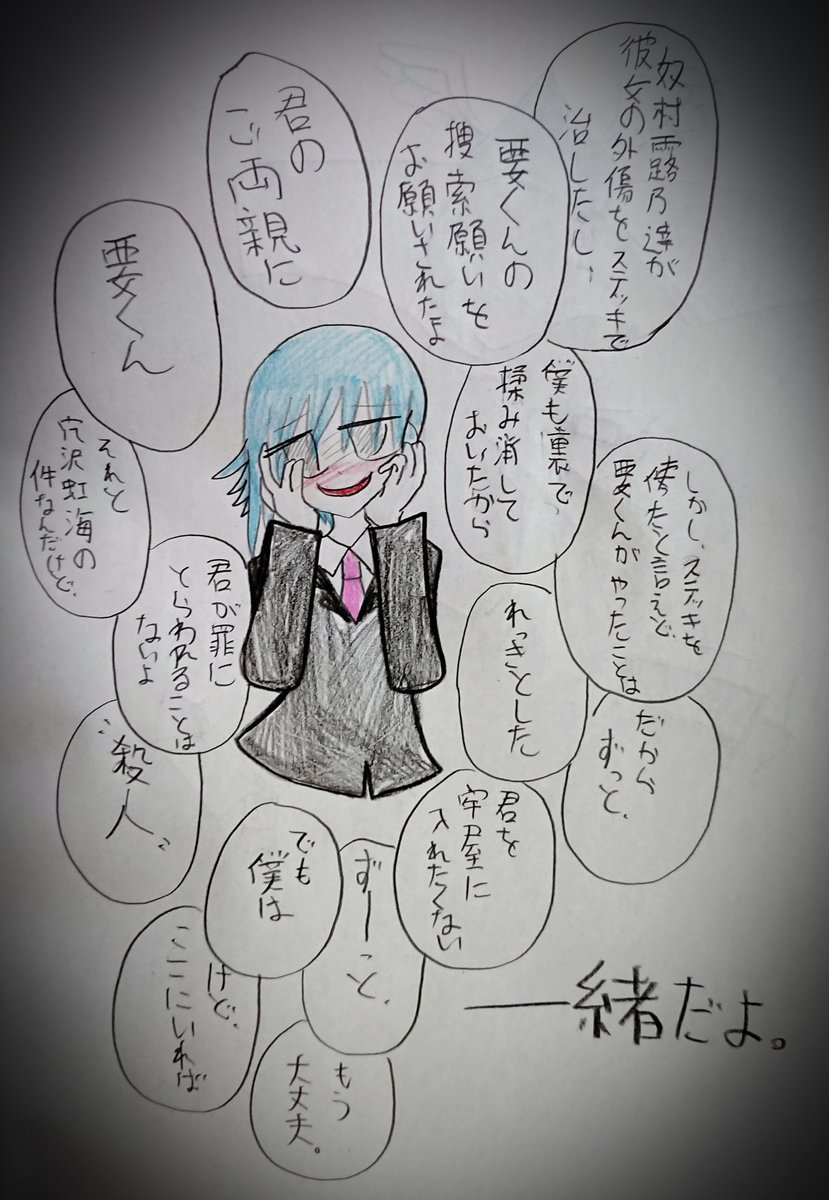 奴村露乃達が
彼女の外傷をステッキで
治したし、
要くんの
捜索願いを
お願いされたよ
君の
ご両親に
要くん
僕も裏で
揉み消して
おいたから
それと
穴沢虹海の
件なんだけど、
しかし、ステッキを
使ったと言えど
要くんがやったことは
君が罪に
とらわれることは
ないよ
れっきとした
だから
ずっと、
殺人。
君を
牢屋に
入れたくない
でも
僕は
ずーっと、
けど、
ここにいれば
もう
大丈夫。
一緒だよ。